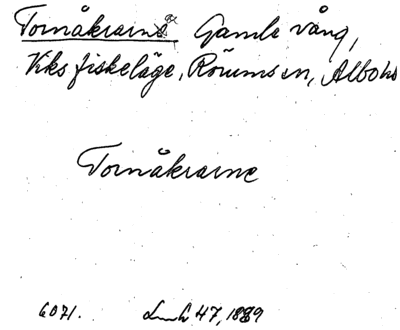 Tornåkrarna Gamle vång,
Viks fiskeläge, Rörums sn, Albo hd
Tornåkrarne
6071. Lmh 47, 1889